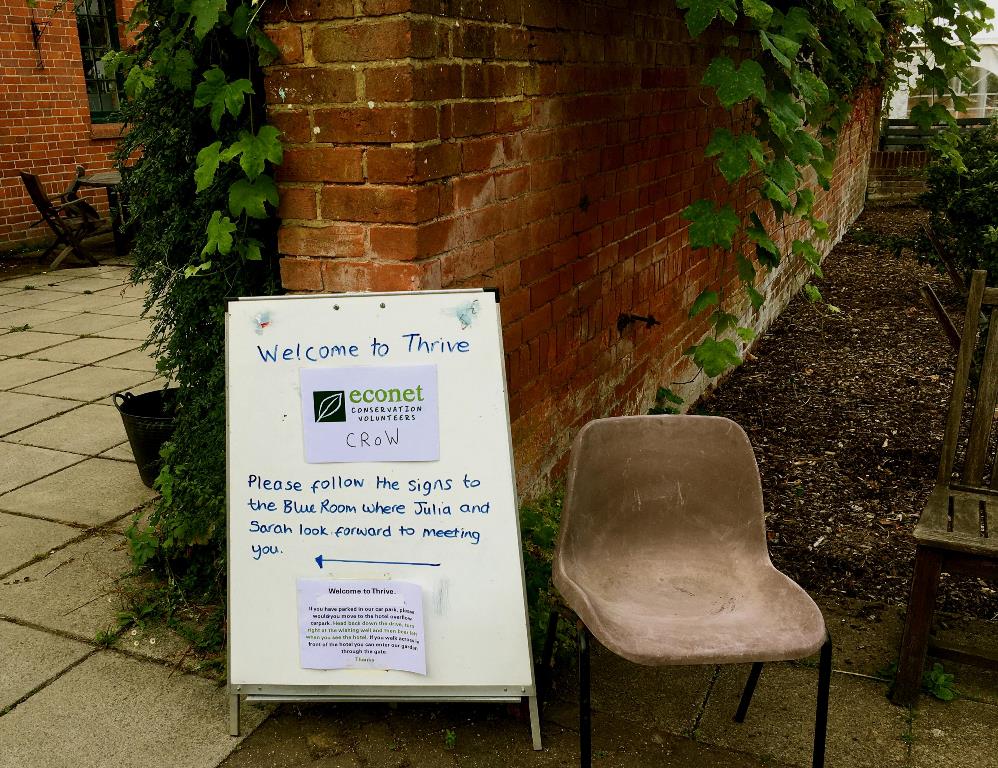 Welcome to Thrive
econet
CONSERVATION
VOLUNTEERS
CRoW
Please follow the signs to
the Blue Room where Julia and
Sarah look forward to meeting
you.
Welcome to Thrive.
If you have parked in our car park, please
would you move to the hotel overflow
carpark. Head back down the drive, turn
right at the wishing well and then bear left
when you see the hotel. If you walk across in
front of the hotel you can enter our garden
through the gate.
Thanks